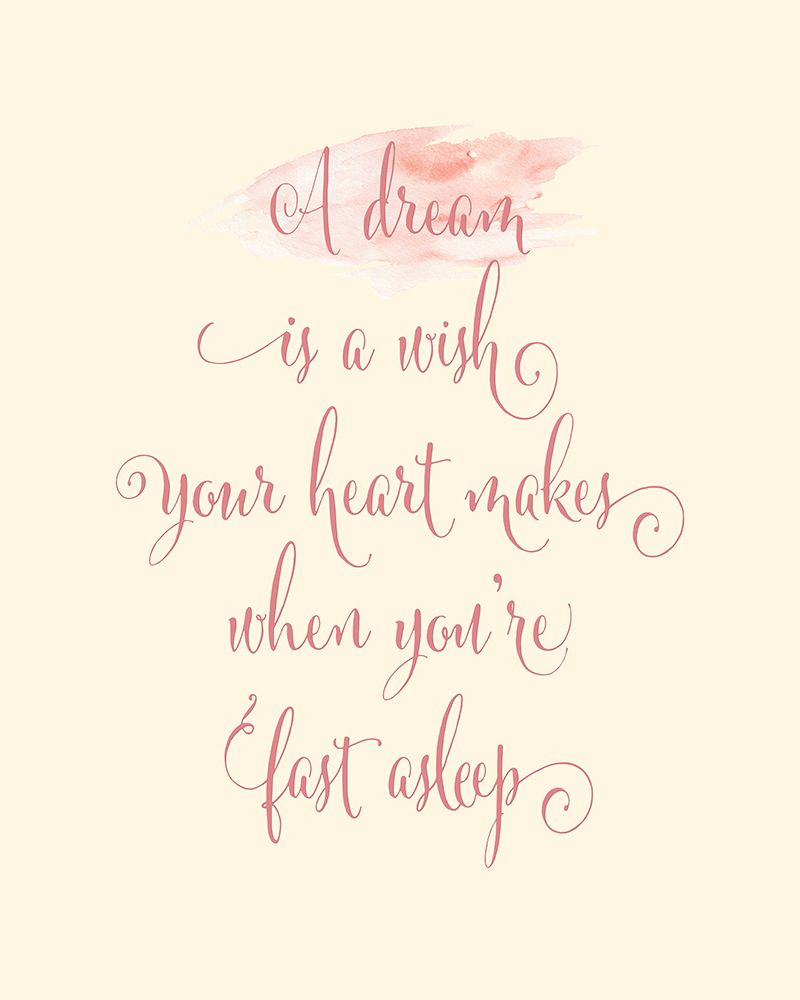 A dream
is a wish
your heart makes
when you're
fast asleep